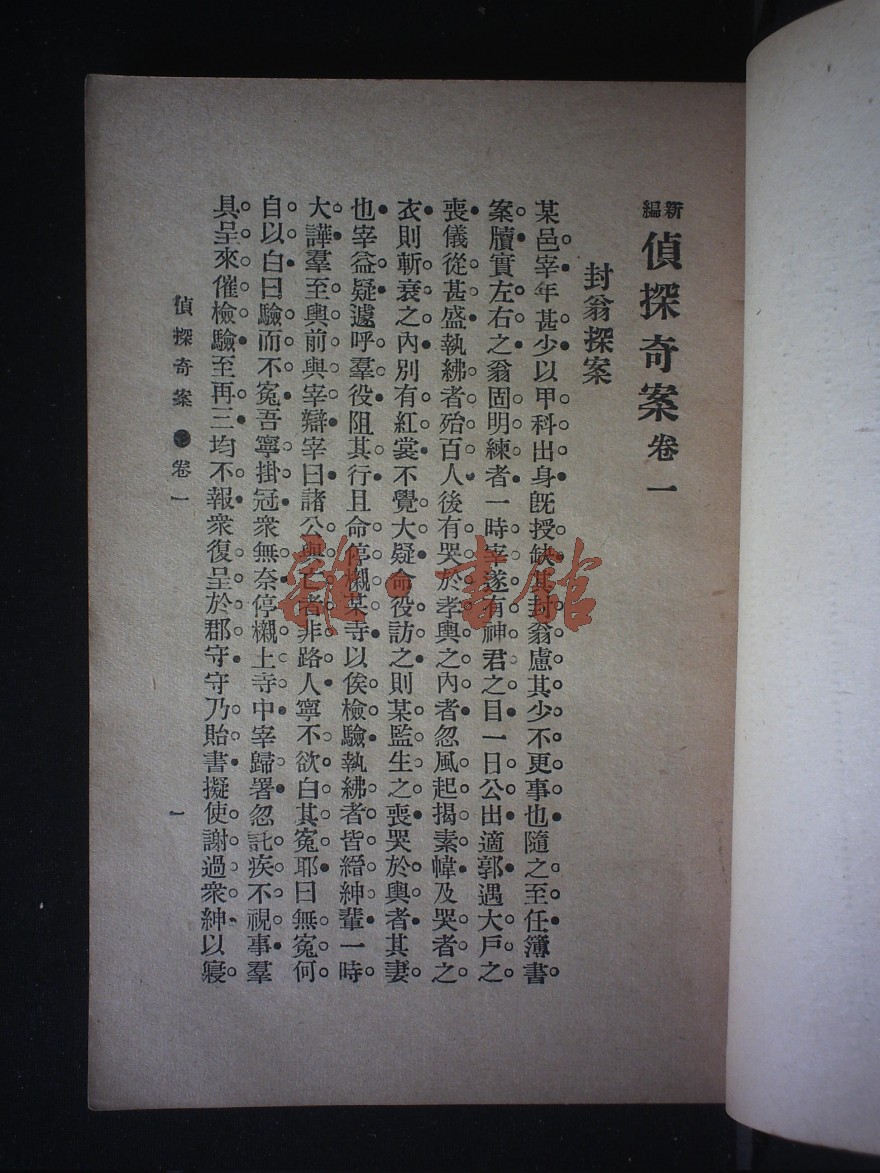 新編 偵探奇案 卷一
封翁探案
某邑宰年甚少以甲科出身旣授缺其封翁慮其少不更事也隨之至任簿書
案牘實左右之翁固明練者一時宰遂有神君之目一日公出適郭遇大戶之
喪儀從甚盛執紼者殆百人後有哭於孝輿之內者忽風起揭素幃及哭者之
衣則斬衰之內別有紅裳不覺大疑命役訪之則某監生之喪哭於輿者其妻
也宰益疑遽呼羣役阻其行且命停櫬某寺以俟檢驗執紼者皆縉紳輩一時
大譁羣至輿前與宰辯宰曰諸公與亡者非路人寧不欲白其冤耶曰無冤何
自以白曰驗而不冤吾寧掛冠衆無奈停櫬土寺中宰歸署忽託疾不視事羣
具呈來催檢驗至再三均不報衆復呈於郡守守乃貽書擬使謝過衆紳以寢
偵探奇案 卷一 一
雜·書館